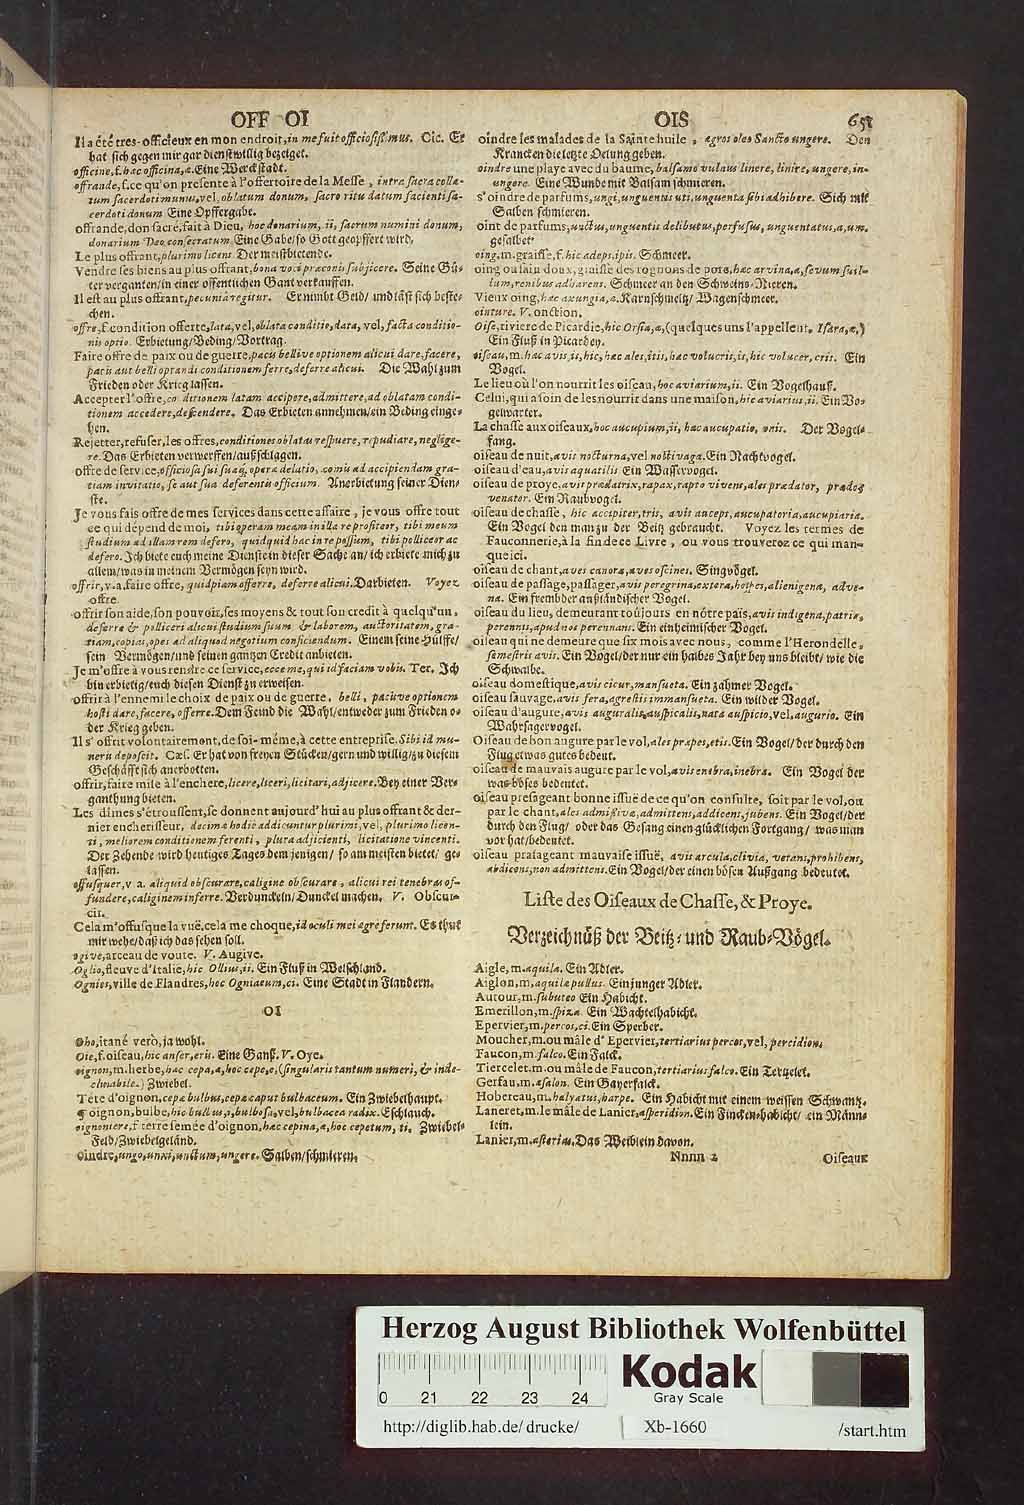 OFF OI
Il a été tres-officieux en mon endroit, in me fuit officiosissimus. Cic. Er
hat sich gegen mir gar dienstwillig bezeiget.
officine, f. hac officina, a. Eine Werckstadt.
offrande, f. ce qu'on presente à l'offertoire de la Messe, intra sacra colla-
tum sacerdoti munus, vel, oblatum donum, sacro ritu datum facienti sa-
cerdoti donum Eine Opffergabe.
offrande, don sacré, fait à Dieu, hoc donarium, ii, sacrum numini donum,
donarium Deo consecratum. Eine Gabe/ so Gott geopffert wird.
Le plus offrant, plurimo licens. Der meistbietende.
Vendre ses biens au plus offrant, bona voci præconis subjicere. Seine Gü-
ter verganten/in einer offentlichen Gant verkauffen.
Il est au plus offrant, pecuniâ regitur. Er nimbt Geld/ und läst sich beste-
chen.
offre, f. condition offerte, lata, vel, oblata conditio, data, vel, facta conditio-
nis optio. Erbietung/Beding/Vortrag.
Faire offre de paix ou de guerre, pacis bellive optionem alicui dare, facere,
pacis aut belli optandi conditionem ferre, deferre alicui. Die Wahl zum
Frieden oder Krieg lassen.
Accepter l'offre, conditionem latam accipere, admittere, ad oblatam condi-
tionem accedere, descendere. Das Erbieten annehmen/ein Beding einge-
hen.
Rejetter, refuser, les offres, conditiones oblatas respuere, repudiare, neglige-
re. Das Erbieten verwerffen/außschlagen.
offre de service, officiosa sui suæq, opera delatio, comis ad accipiendam gra-
tiam invitatio, se aut sua deferentis officium. Anerbietung seiner Dien-
ste.
Je vous fais offre de mes services dans cette affaire, je vous offre tout
ce qui dépend de moi, tibi operam meam in illa re profiteor, tibi meum
studium ad illam rem defero, quidquid hac in re possum, tibi polliceor ac
defero. Ich biete euch meine Dienst in dieser Sache an/ ich erbiete mich zu
allem/was in meinem Vermögen seyn wird.
offrir, v. a. faire offre, quidpiam offerre, deferre alicui. Darbieten. Voyez
offre.
offrir son aide, son pouvoir, ses moyens & tout son credit à quelqu'un,
deferre & polliceri alicui studium suum & laborem, auctoritatem, gra-
tiam, copias, opes ad aliquod negotium conficiendum. Einem seine Hülffe/
sein Vermögen/und seinen gantzen Credit anbieten.
Je m'offre à vous rendre ce service, ecce me, qui id faciam vobis. Ter. Ich
bin erbietig/euch diesen Dienst zu erweisen.
offrir à l'ennemi le choix de paix ou de guerre, belli, pacisve optionem
hosti dare, facere, offerre. Dem Feind die Wahl/entweder zum Frieden o-
der Krieg geben.
Il s'offrit volontairement, de soi-méme, à cette entreprise. Sibi id mu-
neris deposcit. Cæs. Er hat von freyen Stücken/gern und willig/zu diesem
Geschäffte sich anerbotten.
offrir, faire mise à l'enchere, licere, liceri, licitari, adjicere. Bey einer Ver-
ganthung bieten.
Les dîmes s'étroussent, se donnent aujourd'hui au plus offrant & der-
nier encherisseur, decimæ hodie addicuntur plurimi, vel, plurimo licen-
ti, meliorem conditionem ferenti, plura adjicienti, licitatione vincenti.
Der Zehende wird heutiges Tages demjenigen/ so am meisten bietet/ ge-
lassen.
offusquer, v a. aliquid obscurare, caligine obscurare, alicui rei tenebras of-
fundere, caliginem inferre. Verdunckeln/Dunckel machen. V. Obscur-
cir.
Cela m'offusque la vuë, cela me choque, id oculi mei ægre ferunt. Es thut
mir wehe/daß ich das sehen soll.
ogive, arceau de voute. V. Augive.
Oglio, fleuve d'Italie, hic Ollius, ii. Ein Fluß in Welschland.
Ognies, ville de Flandres, hoc Ogniacum, ci. Eine Stadt in Flandern.
OI
Oho, itané verò, ja wohl.
Oie, f. oiseau, hic anser, eris. Eine Ganß. V. Oye.
oignon, m. herbe, hac cepa, a, hoc cepe, e, (singularis tantum numeri, & inde-
clinabile.) Zwiebel.
Téte d'oignon, cepæ bulbus, cepæ caput bulbaceum. Ein Zwiebelhaupt.
¶ oignon, bulbe, hic bullus, i, bulbosa, vel, bulbacea radix. Eschlauch.
oignoniere, f. terre semée d'oignon, hac cepina, a, hoc cepetum, ti. Zwiebel-
Feld/Zwiebelgeländ.
oindre, ungo, unxi, unctum, ungere. Salben/schmieren.
OIS
651
oindre les malades de la Sainte huile, ægros oleo Sancto ungere. Den
Krancken die letzte Oelung geben.
oindre une playe avec du baume, balsamo vulnus linere, linire, ungere, in-
ungere. Eine Wunde mit Balsam schmieren.
s'oindre de parfums, ungi, unguentis uti, unguenta sibi adhibere. Sich mit
Salben schmieren.
oint de parfums, unctus, unguentis delibutus, perfusus, unguentatus, a, um.
gesalbet
oing, m. graisse, f. hic adeps, ipis. Schmeer.
oing ou sain doux, graisse des rognons de porc, hac arvina, a, sevum suil-
lum, renibus adhærens. Schmeer an den Schweins-Nieren.
Vieux oing, hac axungia, a. Karnschmeltz/ Wagenschmeer.
ointure. V. onction.
Oise, riviere de Picardie, hic Orsia, a, (quelques uns l'appellent. Isara, a,)
Ein Fluß in Picardey.
oiseau, m. hac avis, is, hic, hæc ales, itis, hæc volucris, is, hic volucer, cris. Ein
Vogel.
Le lieu où l'on nourrit les oiseau, hoc aviarium, ii. Ein Vogelhauß.
Celui, qui a soin de les nourrit dans une maison, hic aviarius, ii. Ein Vo-
gelwarter.
La chasse aux oiseaux, hoc aucupium, ii, hac aucupatio, onis. Der Vogel-
fang.
oiseau de nuit, avis nocturna, vel noctivaga. Ein Nachtvogel.
oiseau d'eau, avis aquatilis Ein Wasservogel.
oiseau de proye, avis prædatrix, rapax, rapto vivens, ales prædator, prædo,
venator. Ein Raubvogel.
oiseau de chasse, hic accipiter, tris, avis anceps, aucupatoria, aucupiaria.
Ein Vogel den man zu der Beitz gebraucht. Voyez les termes de
Fauconnerie, à la fin de ce Livre, ou vous trouverez ce qui man-
que ici.
oiseau de chant, aves canoræ, aves oscines. Singvögel.
oiseau de passage, passager, avis peregrina, extera, hospes, alienigena, adve-
na. Ein frembder außländischer Vogel.
oiseau du lieu, demeurant toûjours en nôtre païs, avis indigena, patria,
perennis, apud nos perennans. Ein einheimischer Vogel.
oiseau qui ne demeure que six mois avec nous, comme l'Herondelle,
semestris avis. Ein Vogel/der nur ein halbes Jahr bey uns bleibt/ wie die
Schwalbe.
oiseau domestique, avis cicur, mansueta. Ein zahmer Vogel.
oiseau sauvage, avis fera, agrestis immansueta. Ein wilder Vogel.
oiseau d'augure, avis auguralis, auspicalis, nata auspicio, vel, augurio. Ein
Wahrsagervogel.
Oiseau de bon augure par le vol, ales præpes, etis. Ein Vogel/der durch den
Flug etwas gutes bedeut.
oiseau de mauvais augure par le vol, avis enebra, inebra. Ein Vogel der
was böses bedeutet.
Oiseau presageant bonne issuë de ce qu'on consulte, soit par le vol, ou
par le chant, ales admissiva, admittens, addicens, jubens. Ein Vogel/der
durch den Flug/ oder das Gesang einen glücklichen Fortgang/ was man
vor hat/bedeutet.
oiseau presageant mauvaise issuë, avis arcula, clivia, vetans, prohibens,
abdicens, non admittens. Ein Vogel/der einen bösen Außgang bedeutet.
Liste des Oiseaux de Chasse, & Proye.
Verzeichnüß der Beitz- und Raub-Vögel.
Aigle, m. aquila. Ein Adler.
Aiglon, m, aquilæ pullus. Ein junger Adler.
Autour, m. subuteo Ein Habicht.
Emerillon, m. spiza. Ein Wachtelhabicht.
Epervier, m. percos, ci. Ein Sperber.
Moucher, m. ou mâle d'Epervier, tertiarius percos, vel, percidion.
Faucon, m. falco. Ein Falck.
Tiercelet, m. ou mâle de Faucon, tertiarius falco. Ein Tertzlet.
Gerfau, m. asalon. Ein Gayerfalck.
Hobereau, m. halyætus, harpe. Ein Habicht mit einem weissen Schwantz.
Laneret, m. le mâle de Lanier, asperidion. Ein Finckenhabicht/ ein Männ-
lein.
Lanier, m. asterias. Das Weiblein davon.
Nnnn 2
Oiseaux
Herzog August Bibliothek Wolfenbüttel
0 21 22 23 24
Kodak
Gray Scale
http://diglib.hab.de/drucke/ Xb-1660 /start.htm